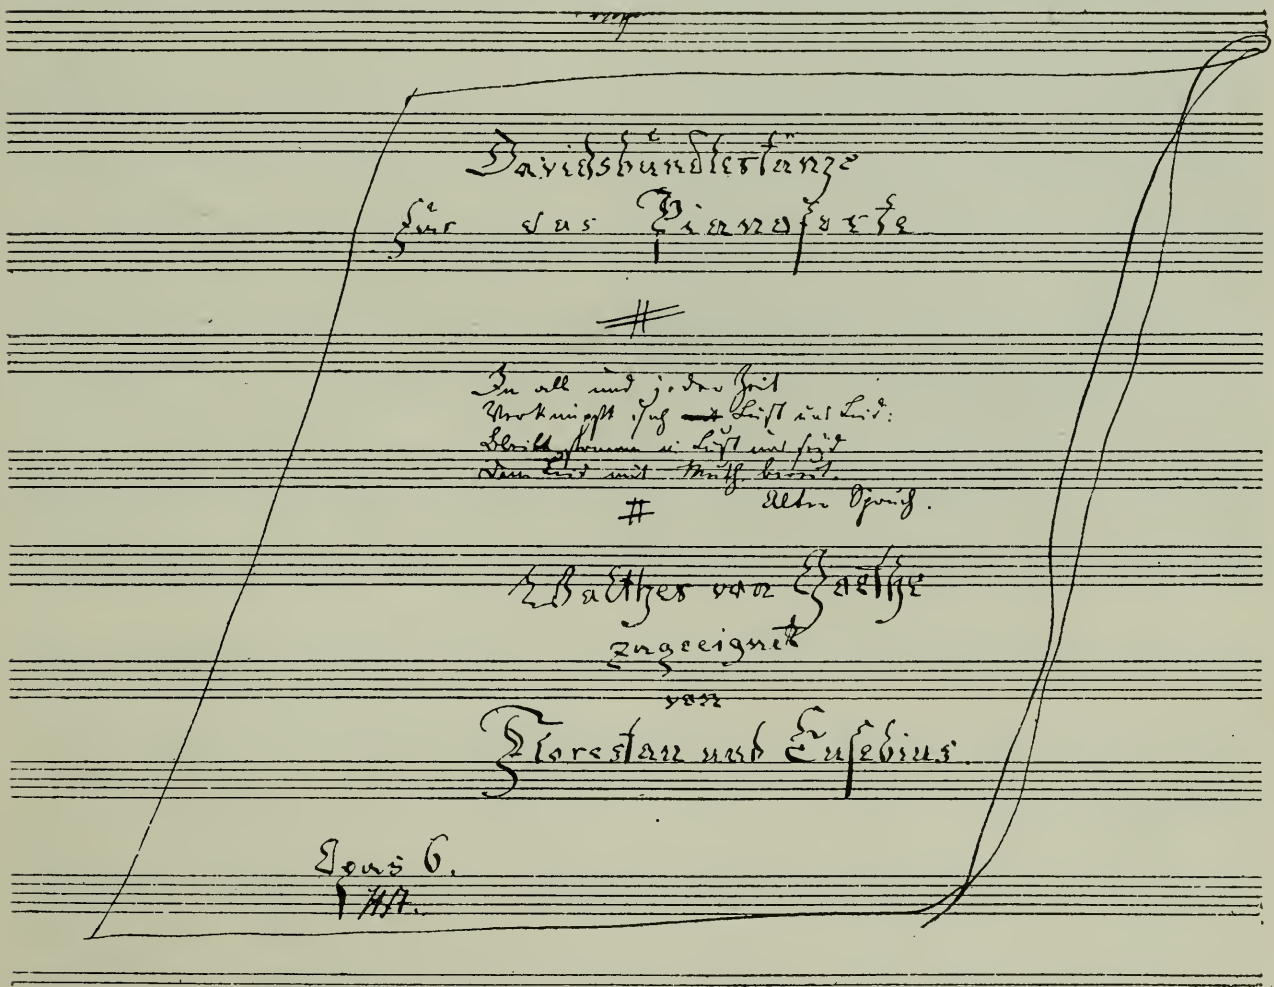 Davidsbündlertänze
Für das Pianoforte
In all und jeder Zeit
Verknüpft sich Lust und Leid:
Bleibt fromm in Lust und seyd
Dem Leid mit Muth bereit.
Alter Spruch.
Walther von Goethe
zugeeignet
von
Florestan und Eusebius.
Opus 6.